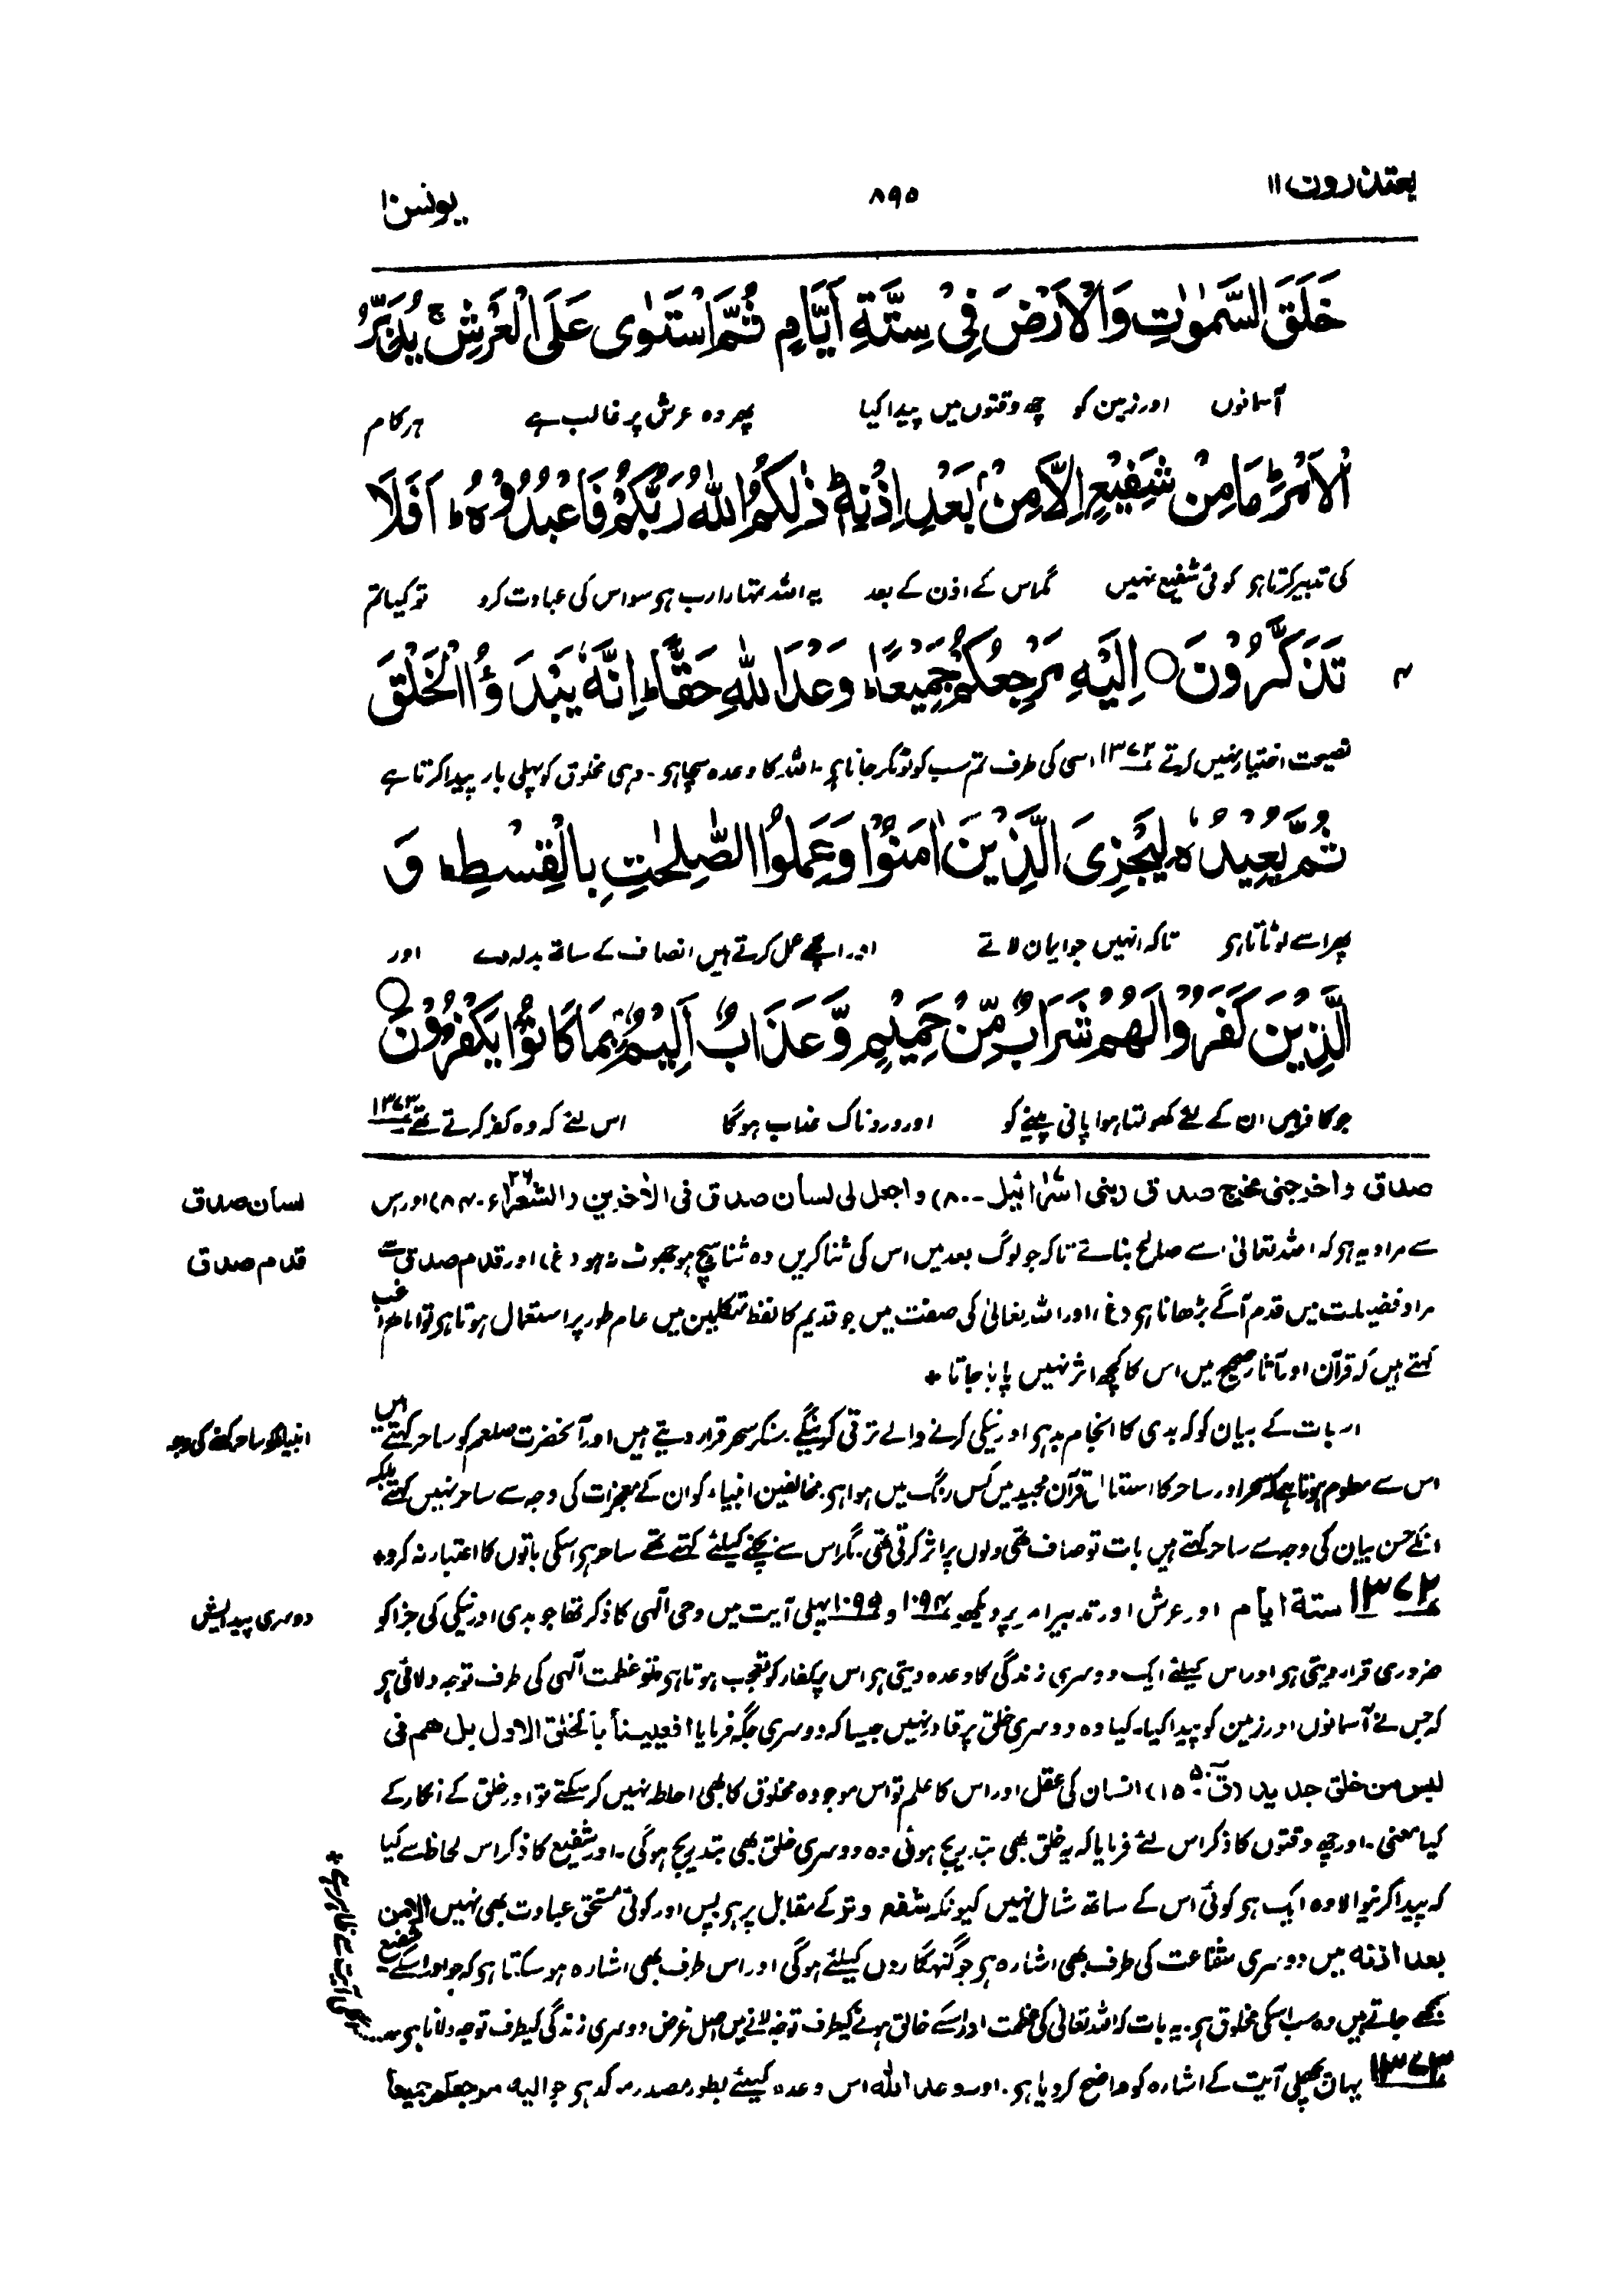 یعتذرون ۱۱
۸۹۵
یونس ۱۰
خَلَقَ السَّمٰوٰتِ وَالْاَرْضَ فِیْ سِتَّةِ اَیَّامٍ ثُمَّ اسْتَوٰی عَلَی الْعَرْشِ ۚ یُدَبِّرُ
آسمانوں اور زمین کو چھ وقتوں میں پیدا کیا پھر وہ عرش پر غالب ہے ہر کام
الْاَمْرَ ؕ مَا مِنْ شَفِیْعٍ اِلَّا مِنْۢ بَعْدِ اِذْنِهٖ ؕ ذٰلِكُمُ اللّٰهُ رَبُّكُمْ فَاعْبُدُوْهُ ؕ اَفَلَا
کی تدبیر کرتا ہو کوئی شفیع نہیں مگر اس کے اذن کے بعد یہ اللہ تمہارا رب ہو سو اس کی عبادت کرو تو کیا تم
تَذَكَّرُوْنَ ○ اِلَیْهِ مَرْجِعُكُمْ جَمِیْعًا ؕ وَعْدَ اللّٰهِ حَقًّا ؕ اِنَّهٗ یَبْدَؤُا الْخَلْقَ
۴
نصیحت اختیار نہیں کرتے ۱۳۷۲ اسی کی طرف تم سب کو لوٹ کر جانا ہو۔ اللہ کا وعدہ سچا ہو۔ وہی مخلوق کو پہلی بار پیدا کرتا ہے
ثُمَّ یُعِیْدُهٗ لِیَجْزِیَ الَّذِیْنَ اٰمَنُوْا وَعَمِلُوا الصّٰلِحٰتِ بِالْقِسْطِ ؕ وَ
پھر اسے لوٹاتا ہو تاکہ انہیں جو ایمان لاتے اور اچھے عمل کرتے ہیں انصاف کے ساتھ بدلہ دے اور
الَّذِیْنَ كَفَرُوْا لَهُمْ شَرَابٌ مِّنْ حَمِیْمٍ وَّعَذَابٌ اَلِیْمٌۢ بِمَا كَانُوْا یَكْفُرُوْنَ ○
جو کافر ہیں ان کے لئے کھولتا ہوا پانی پینے کو اور دردناک عذاب ہوگا اس لئے کہ وہ کفر کرتے تھے ۱۳۷۳
صدق واخرجنی مخرج صدق (بنی اسرائیل ۔ ۸۰) واجعل لی لسان صدق فی الاٰخرین (الشعراء ۲۶۔ ۸۴) اور اس
لسان صدق
سے مراد یہ ہو کہ اللہ تعالیٰ اسے صالح بنائے تاکہ جو لوگ بعد میں اس کی ثنا کریں وہ ثنا سچ ہو جھوٹ نہ ہو (غ) اور قدم صدق سے
قدم صدق
مراد فضیلت میں قدم آگے بڑھانا ہو (غ) اور اللہ تعالیٰ کی صفت میں جو قدیم کا لفظ متکلمین میں عام طور پر استعمال ہوتا ہو تو امام راغب
کہتے ہیں کہ قرآن اور آثار صحیح میں اس کا کچھ اثر نہیں پایا جاتا +
اس بات کے بیان کو کہ بدی کا انجام بد ہو اور نیکی کرنے والے ترقی کرینگے۔ منکر سحر قرار دیتے ہیں اور آنحضرت صلعم کو ساحر کہتے ہیں
انبیاء کو ساحر کہنے کی وجہ
اس سے معلوم ہوتا ہے کہ سحر اور ساحر کا استعمال قرآن مجید میں کس رنگ میں ہوا ہو۔ مخالفین انبیاء کو ان کے معجزات کی وجہ سے ساحر نہیں کہتے بلکہ
انکے حسن بیان کی وجہ سے ساحر کہتے ہیں بات تو صاف تھی دلوں پر اثر کرتی تھی۔ مگر اس سے بچنے کیلئے کہتے تھے ساحر ہو اسکی باتوں کا اعتبار نہ کرو+
۱۳۷۲ ستة ایام اور عرش اور تدبیر امر پر دیکھو ۱۰۹۴ و ۱۰۹۵ پہلی آیت میں وحی الٰہی کا ذکر تھا جو بدی اور نیکی کی جزا کو
دوسری پیدایش
ضروری قرار دیتی ہو اور اس کیلئے ایک دوسری زندگی کا وعدہ دیتی ہو اس پر کفار کو تعجب ہوتا ہو تو عظمت الٰہی کی طرف توجہ دلائی ہو
کہ جس نے آسمانوں اور زمین کو پیدا کیا۔ کیا وہ دوسری خلق پر قادر نہیں جیسا کہ دوسری جگہ فرمایا افعیینا بالخلق الاول بل ھم فی
لبس من خلق جدید (ق ۵۰۔ ۱۵) انسان کی عقل اور اس کا علم تو اس موجودہ مخلوق کا بھی احاطہ نہیں کر سکتے تو اور خلق کے انکار کے
کیا معنی۔ اور چھ وقتوں کا ذکر اس لئے فرمایا کہ یہ خلق بھی بتدریج ہوئی وہ دوسری خلق بھی بتدریج ہوگی۔ اور شفیع کا ذکر اس لحاظ سے کیا
کہ پیدا کرنیوالا وہ ایک ہو کوئی اس کے ساتھ شامل نہیں کیونکہ شفع وتر کے مقابل پر ہو پس اور کوئی مستحق عبادت بھی نہیں الا من
بعد اذنہ میں دوسری شفاعت کی طرف بھی اشارہ ہو جو گنہگاروں کیلئے ہوگی اور اس طرف بھی اشارہ ہو سکتا ہو کہ جو اور اسکے شفیع
سمجھے جاتے ہیں وہ سب اسکی مخلوق ہو۔ یہ بات کہ اللہ تعالیٰ کی عظمت اور اسکے خالق ہونے کیطرف توجہ لانے میں اصل غرض دوسری زندگی کیطرف توجہ دلانا ہو
آیت سے ظاہر ہے +
۱۳۷۳ یہاں پچھلی آیت کے اشارہ کو واضح کر دیا ہو۔ اور وعد اللہ اس وعدہ کیلئے بطور مصدر مؤکد ہو جو الیہ مرجعکم جمیعا